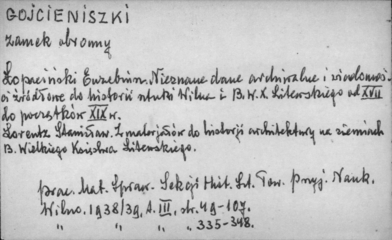 GOJCIENISZKI
zamek obronny
Łopaciński Euzebiusz. Nieznane dane archiwalne i wiadomoś-
ci źródłowe do historii sztuki Wilna i B.W.X. Litewskiego od XVII
do początków XIX w.
Lorentz Stanisław. Z materjałów do historji architektury na ziemiach
B. Wielkiego Księstwa Litewskiego.
prac. Mat. Spraw. Sekcji Hist. Szt. Tow. Przyj. Nauk.
Wilno. 1938/39, t. III, str. 49-107.
" " " " 335-348.